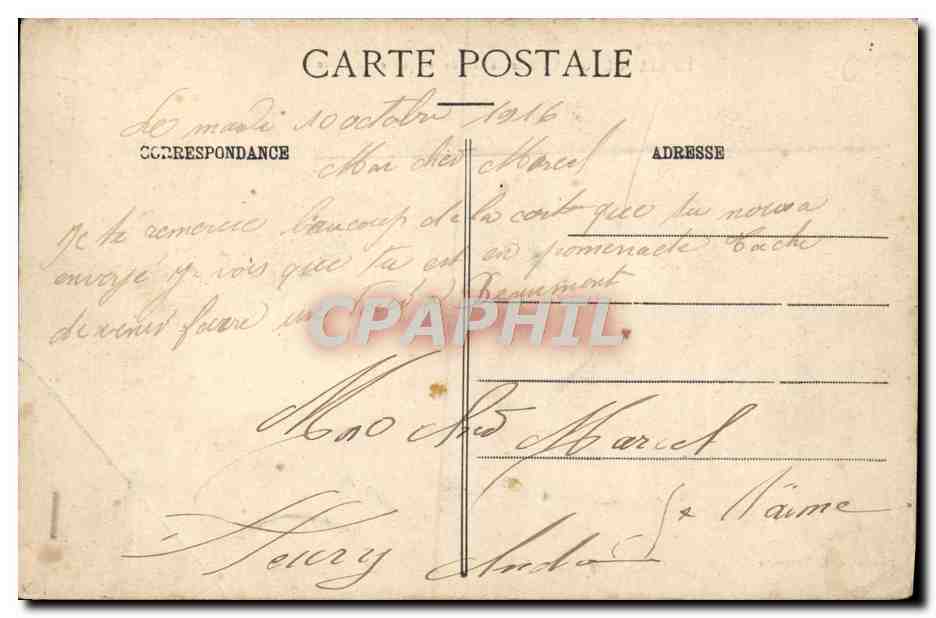 CARTE POSTALE
Le mardi 10 octobre 1916
CORRESPONDANCE
ADRESSE
Mon cher Marcel
Je te remercie baucoup de la carte que tu nous a
envoyé je vois que tu est en promenade tache
de venir faire un à Beaumont
CPAPHIL
Mon cher Marcel
Je t'aime
Fleury André